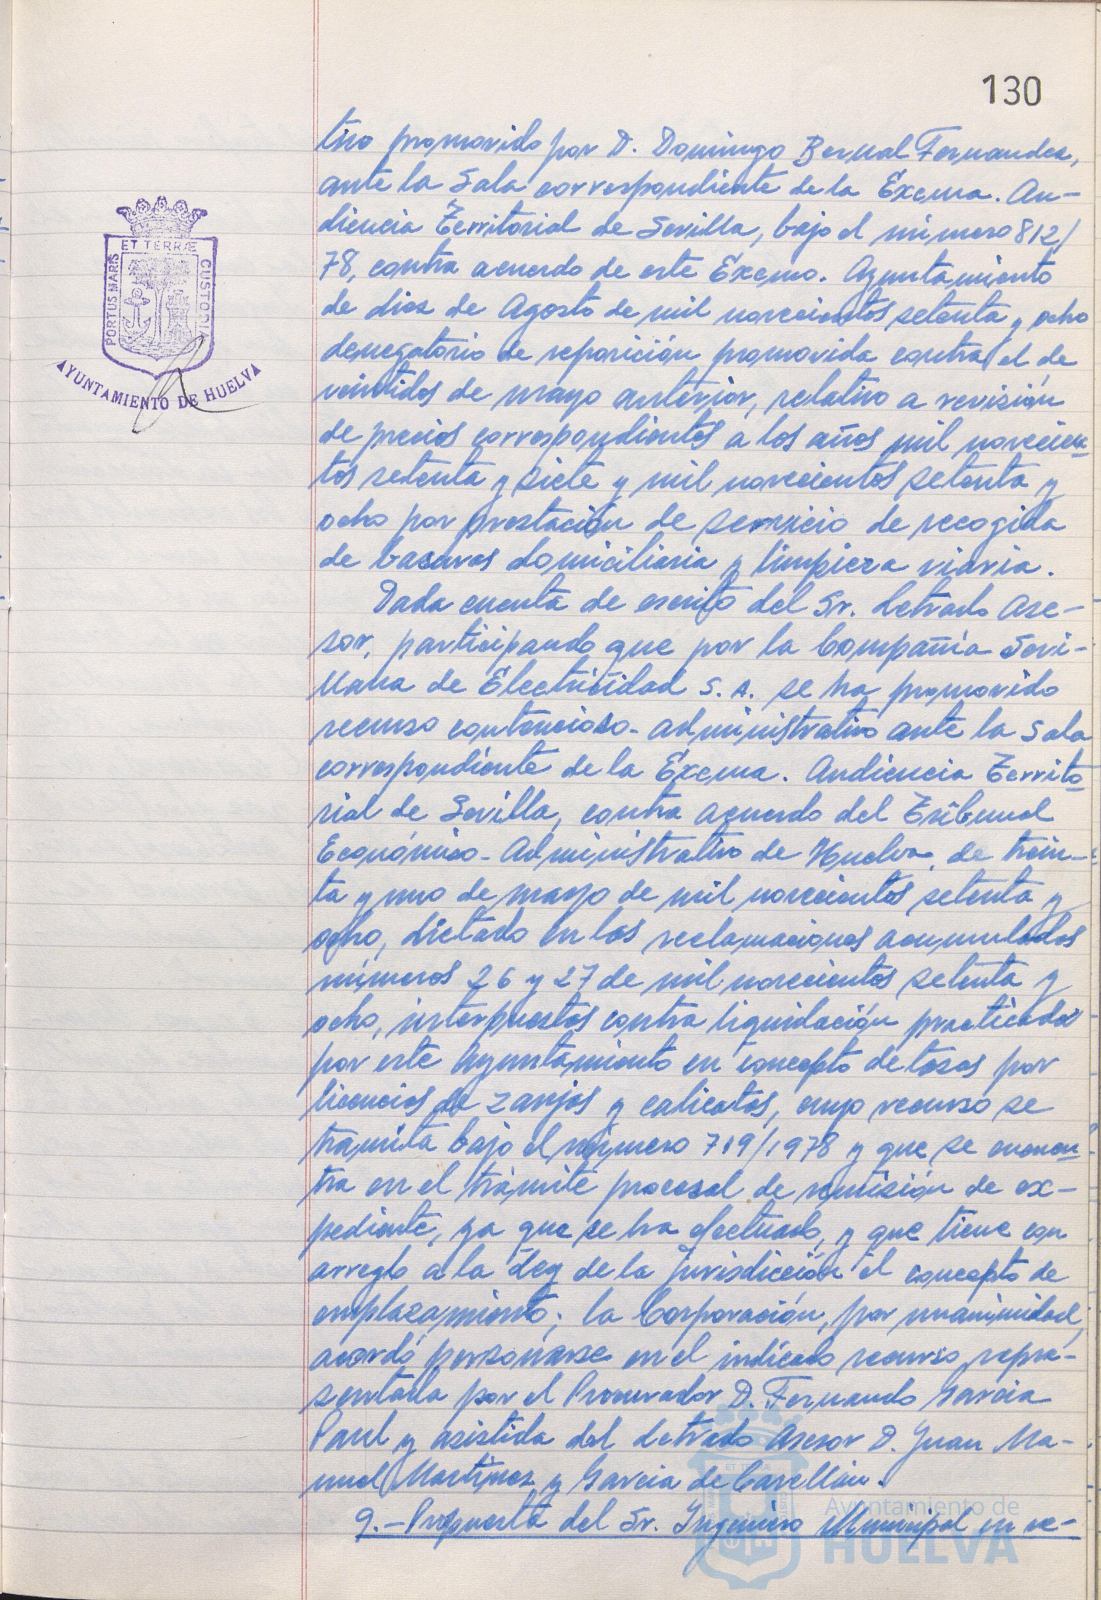 130
tivo promovido por D. Domingo Bernal Fernandez,
ante la Sala correspondiente de la Excma. Au-
diencia Territorial de Sevilla, bajo el número 812/
78, contra acuerdo de este Excmo. Ayuntamiento
de diez de Agosto de mil novecientos setenta y ocho
denegatorio de reposición promovida contra el de
veintidos de mayo anterior, relativo a revisión
de precios correspondientes a los años mil novecien-
tos setenta y siete y mil novecientos setenta y
ocho por prestación de servicio de recogida
de basuras domiciliaria y limpieza viaria.
Dada cuenta de escrito del Sr. Letrado Ase-
sor, participando que por la Compañía Sevi-
llana de Electricidad S. A. se ha promovido
recurso contencioso-administrativo ante la Sala
correspondiente de la Excma. Audiencia Territo-
rial de Sevilla, contra acuerdo del Tribunal
Económico-Administrativo de Huelva, de trein-
ta y uno de mayo de mil novecientos setenta y
ocho, dictado en las reclamaciones acumuladas
números 26 y 27 de mil novecientos setenta y
ocho, interpuestas contra liquidación practicada
por este Ayuntamiento en concepto de tasas por
licencias de zanjas y calicatas, cuyo recurso se
tramita bajo el número 719/1978 y que se encuen-
tra en el trámite procesal de remisión de ex-
pediente, ya que se ha efectuado, y que tiene con
arreglo a la Ley de la jurisdicción el concepto de
emplazamiento; la Corporación, por unanimidad,
acordó personarse en el indicado recurso repre-
sentada por el Procurador D. Fernando García
Paul y asistida del Letrado Asesor D. Juan Ma-
nuel Martínez y García de
9.- Propuesta del Sr. Ingeniero Municipal en re-
PORTUS MARIS ET TERRÆ CUSTODIA
AYUNTAMIENTO DE HUELVA
Ayuntamiento de
HUELVA